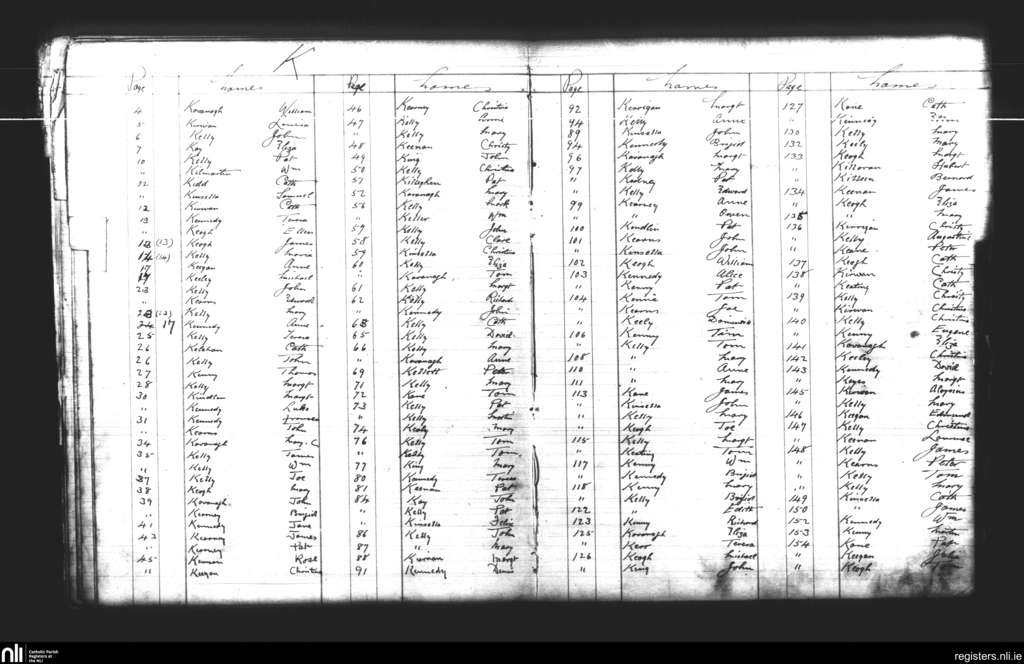 K
Page names
4 Kavanagh William
5 Kirwan Louisa
6 Kelly John
7 Kay Eliza
10 Kelly Pat
" Kilmartin Wm
12 Kidd Cath
" Kinsella Samuel
12 Kirwan Cath
13 Kennedy Teresa
" Keogh Ellen
13 (13) Keogh James
14 (14) Kelly Maria
17 Keegan Anne
17 Keeley Michael
23 Kelly John
" Kearns Edward
23 (13) Kelly Mary
24 17 Kennedy Anne
25 Kelly Teresa
26 Cath
26 Kelly John
27 Kenny Thomas
28 Kelly Margt
30 Kindlen Margt
" Kennedy Luke
31 Kennedy Frances
" Kearns John
34 Kavanagh Mary C
35 Kelly James
" Kelly Wm
37 Kelly Joe
38 Keogh Mary
39 Kavanagh John
" Kearney Brigid
41 Kennedy Jane
43 Kearney James
" Kearney Pat
45 Kiernan Rose
" Keegan Christina
Page names
46 Kearney Christina
47 Kelly
" Kelly Mary
48 Keenan Christy
49 King John
50 Kelly Christina
51 Pat
52 Kavanagh Mary
56 Kelly Mark
" Wm
57 Kelly John
58 Kelly Clare
59 Kinsella Christina
60 Kelly Eliza
" Kavanagh Tom
61 Kelly Margt
62 Kelly Richard
" Kennedy John
63 Kelly Cath
65 Kelly David
66 Kelly Mary
" Kavanagh Anne
69 Kellett Peter
71 Kelly Mary
72 Kane Tom
73 Kelly Pat
" Kelly
74 Kealy Mary
76 Kelly Tom
" Kelly Tom
77 King Mary
80 Kennedy Teresa
81 Keenan Pat
84 Kay John
" Kelly Pat
" Kinsella Delia
86 Kelly John
87 " Mary
88 Kiernan Margt
91 Kennedy Denis
Page names
92 Kerrigan Margt
94 Kelly Anne
89 Kinsella John
94 Kennedy Brigid
96 Kavanagh Margt
97 Kelly Mary
" Kearney Pat
" Kelly Edward
99 Kearney Anne
" " Owen
100 Kindlen Pat
101 Kearns John
" Kinsella John
102 Keogh William
103 Kennedy Alice
" Kenny Pat
104 Tom
" Kearns Joe
" Keely Dominic
106 Kenny Tim
" Kelly Tom
108 " Mary
110 " Anne
111 " Mary
113 Kane James
" Kinsella John
" Kelly Mary
" Keogh Joe
115 Kelly Margt
" Keating Tom
117 Kenny Wm
" Kennedy Brigid
118 Kenny Mary
" " Brigid
122 " Edith
123 Kenny Richard
125 Kavanagh Eliza
" Kerr Teresa
126 Keogh Michael
" King John
Page names
127 Kane Cath
" Kennedy
130 Kelly Mary
132 Keely Mary
133 Keogh Margt
" Killoran Hubert
" Killeen Bernard
134 Keenan James
" Keogh Eliza
135 " Mary
136 Kerrigan Christy
" Kelly Augustine
" Keane Peter
137 Keogh Cath
138 Kirwan Christy
" Keating Cath
139 Kelly Christy
" Kirwan Christina
140 Kelly Christina
" Kenny Eugene
141 Kavanagh Eliza
142 Keeley Christina
143 Kennedy David
" Keyes Margt
145 Kirwan Aloysius
" Kelly Mary
146 Keegan Edmund
147 Kelly Christina
" Keenan Laurence
148 Kelly James
" Kearns Peter
" Kelly Tom
" Kelly Mary
149 Kinsella Cath
150 " James
152 Kennedy Wm
153 Kenny
154 Kane Pat
" Keegan John
" Keogh John
nli Catholic Parish Registers at the NLI
registers.nli.ie